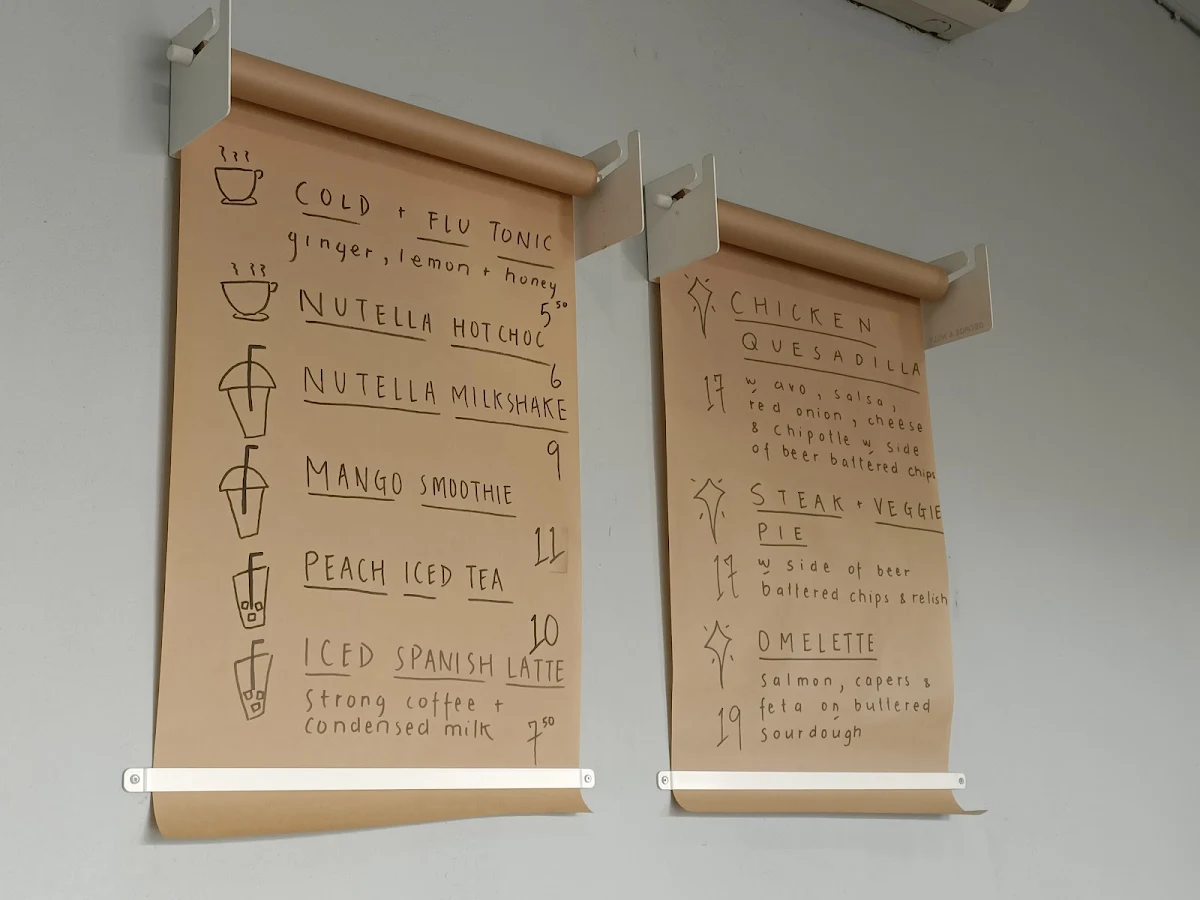 COLD + FLU TONIC
ginger, lemon + honey
5⁵⁰
NUTELLA HOT CHOC
6
NUTELLA MILKSHAKE
9
MANGO SMOOTHIE
11
PEACH ICED TEA
10
ICED SPANISH LATTE
strong coffee +
condensed milk
7⁵⁰
CHICKEN
QUESADILLA
17
w avo, salsa,
red onion, cheese
& chipotle w side
of beer battered chips
STEAK + VEGGIE
PIE
17
w side of beer
battered chips & relish
OMELETTE
salmon, capers &
feta on buttered
19
sourdough